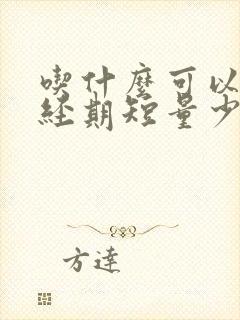 喫什麼可以
經期短量少
方達